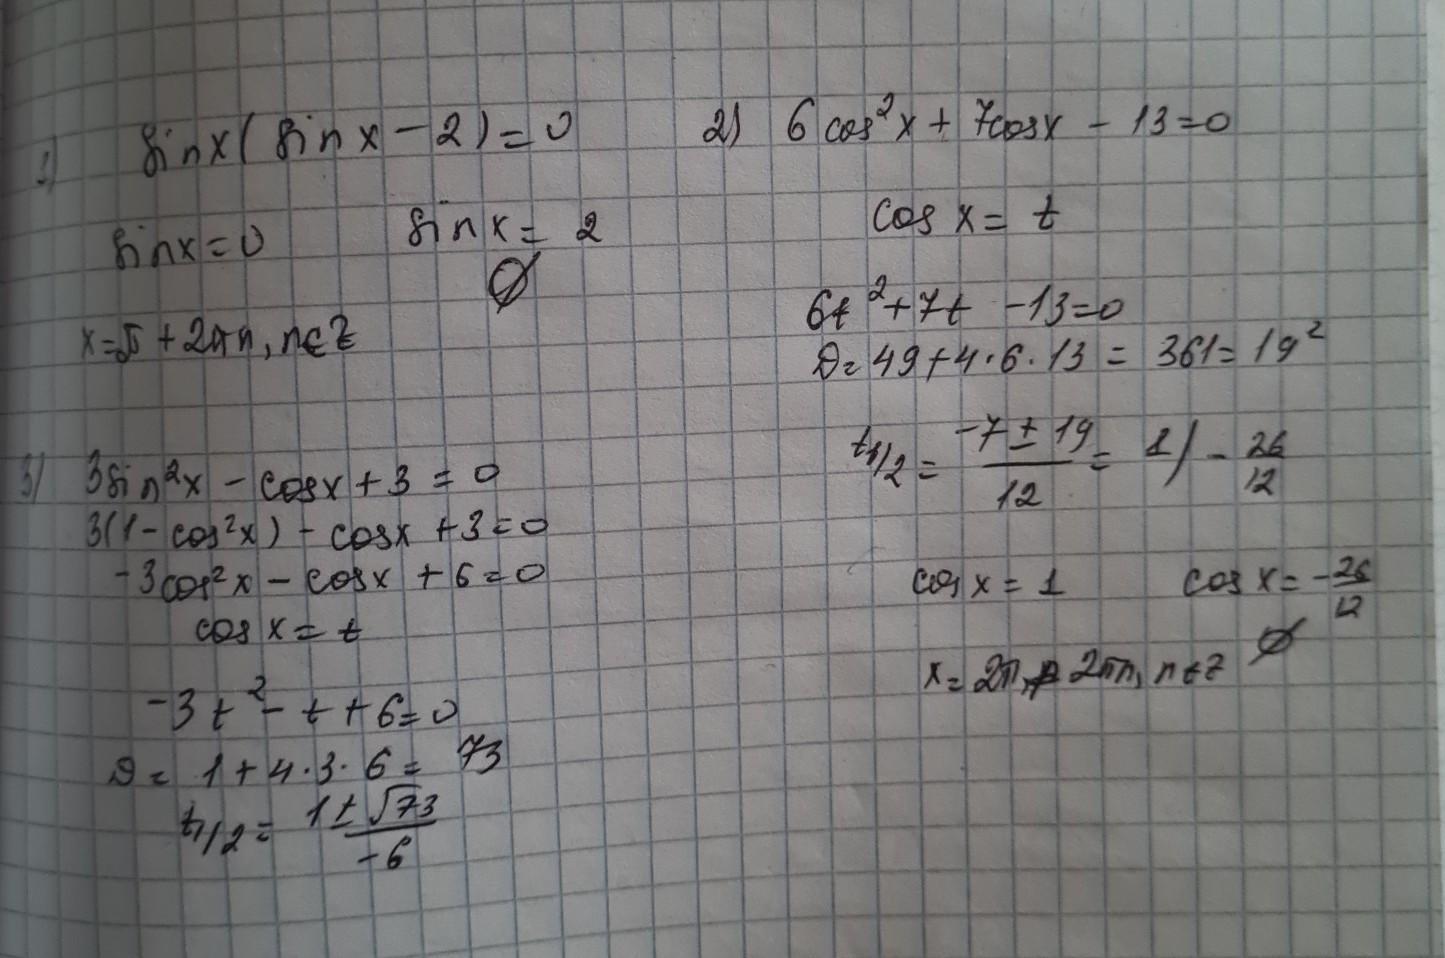 1) sin x ( sin x - 2 ) = 0
sin x = 0 sin x = 2
∅
x = π + 2πn, n ∈ Z
2) 6 cos² x + 7 cos x - 13 = 0
cos x = t
6t² + 7t - 13 = 0
D = 49 + 4 · 6 · 13 = 361 = 19²
t₁/₂ = (-7 ± 19)/12 = 1 ) - 26/12
cos x = 1 cos x = - 26/12
x = 2π, 2πn, n ∈ Z ∅
3) 3 sin² x - cos x + 3 = 0
3(1 - cos² x) - cos x + 3 = 0
-3 cos² x - cos x + 6 = 0
cos x = t
-3t² - t + 6 = 0
D = 1 + 4 · 3 · 6 = 73
t₁/₂ = (1 ± √73)/-6